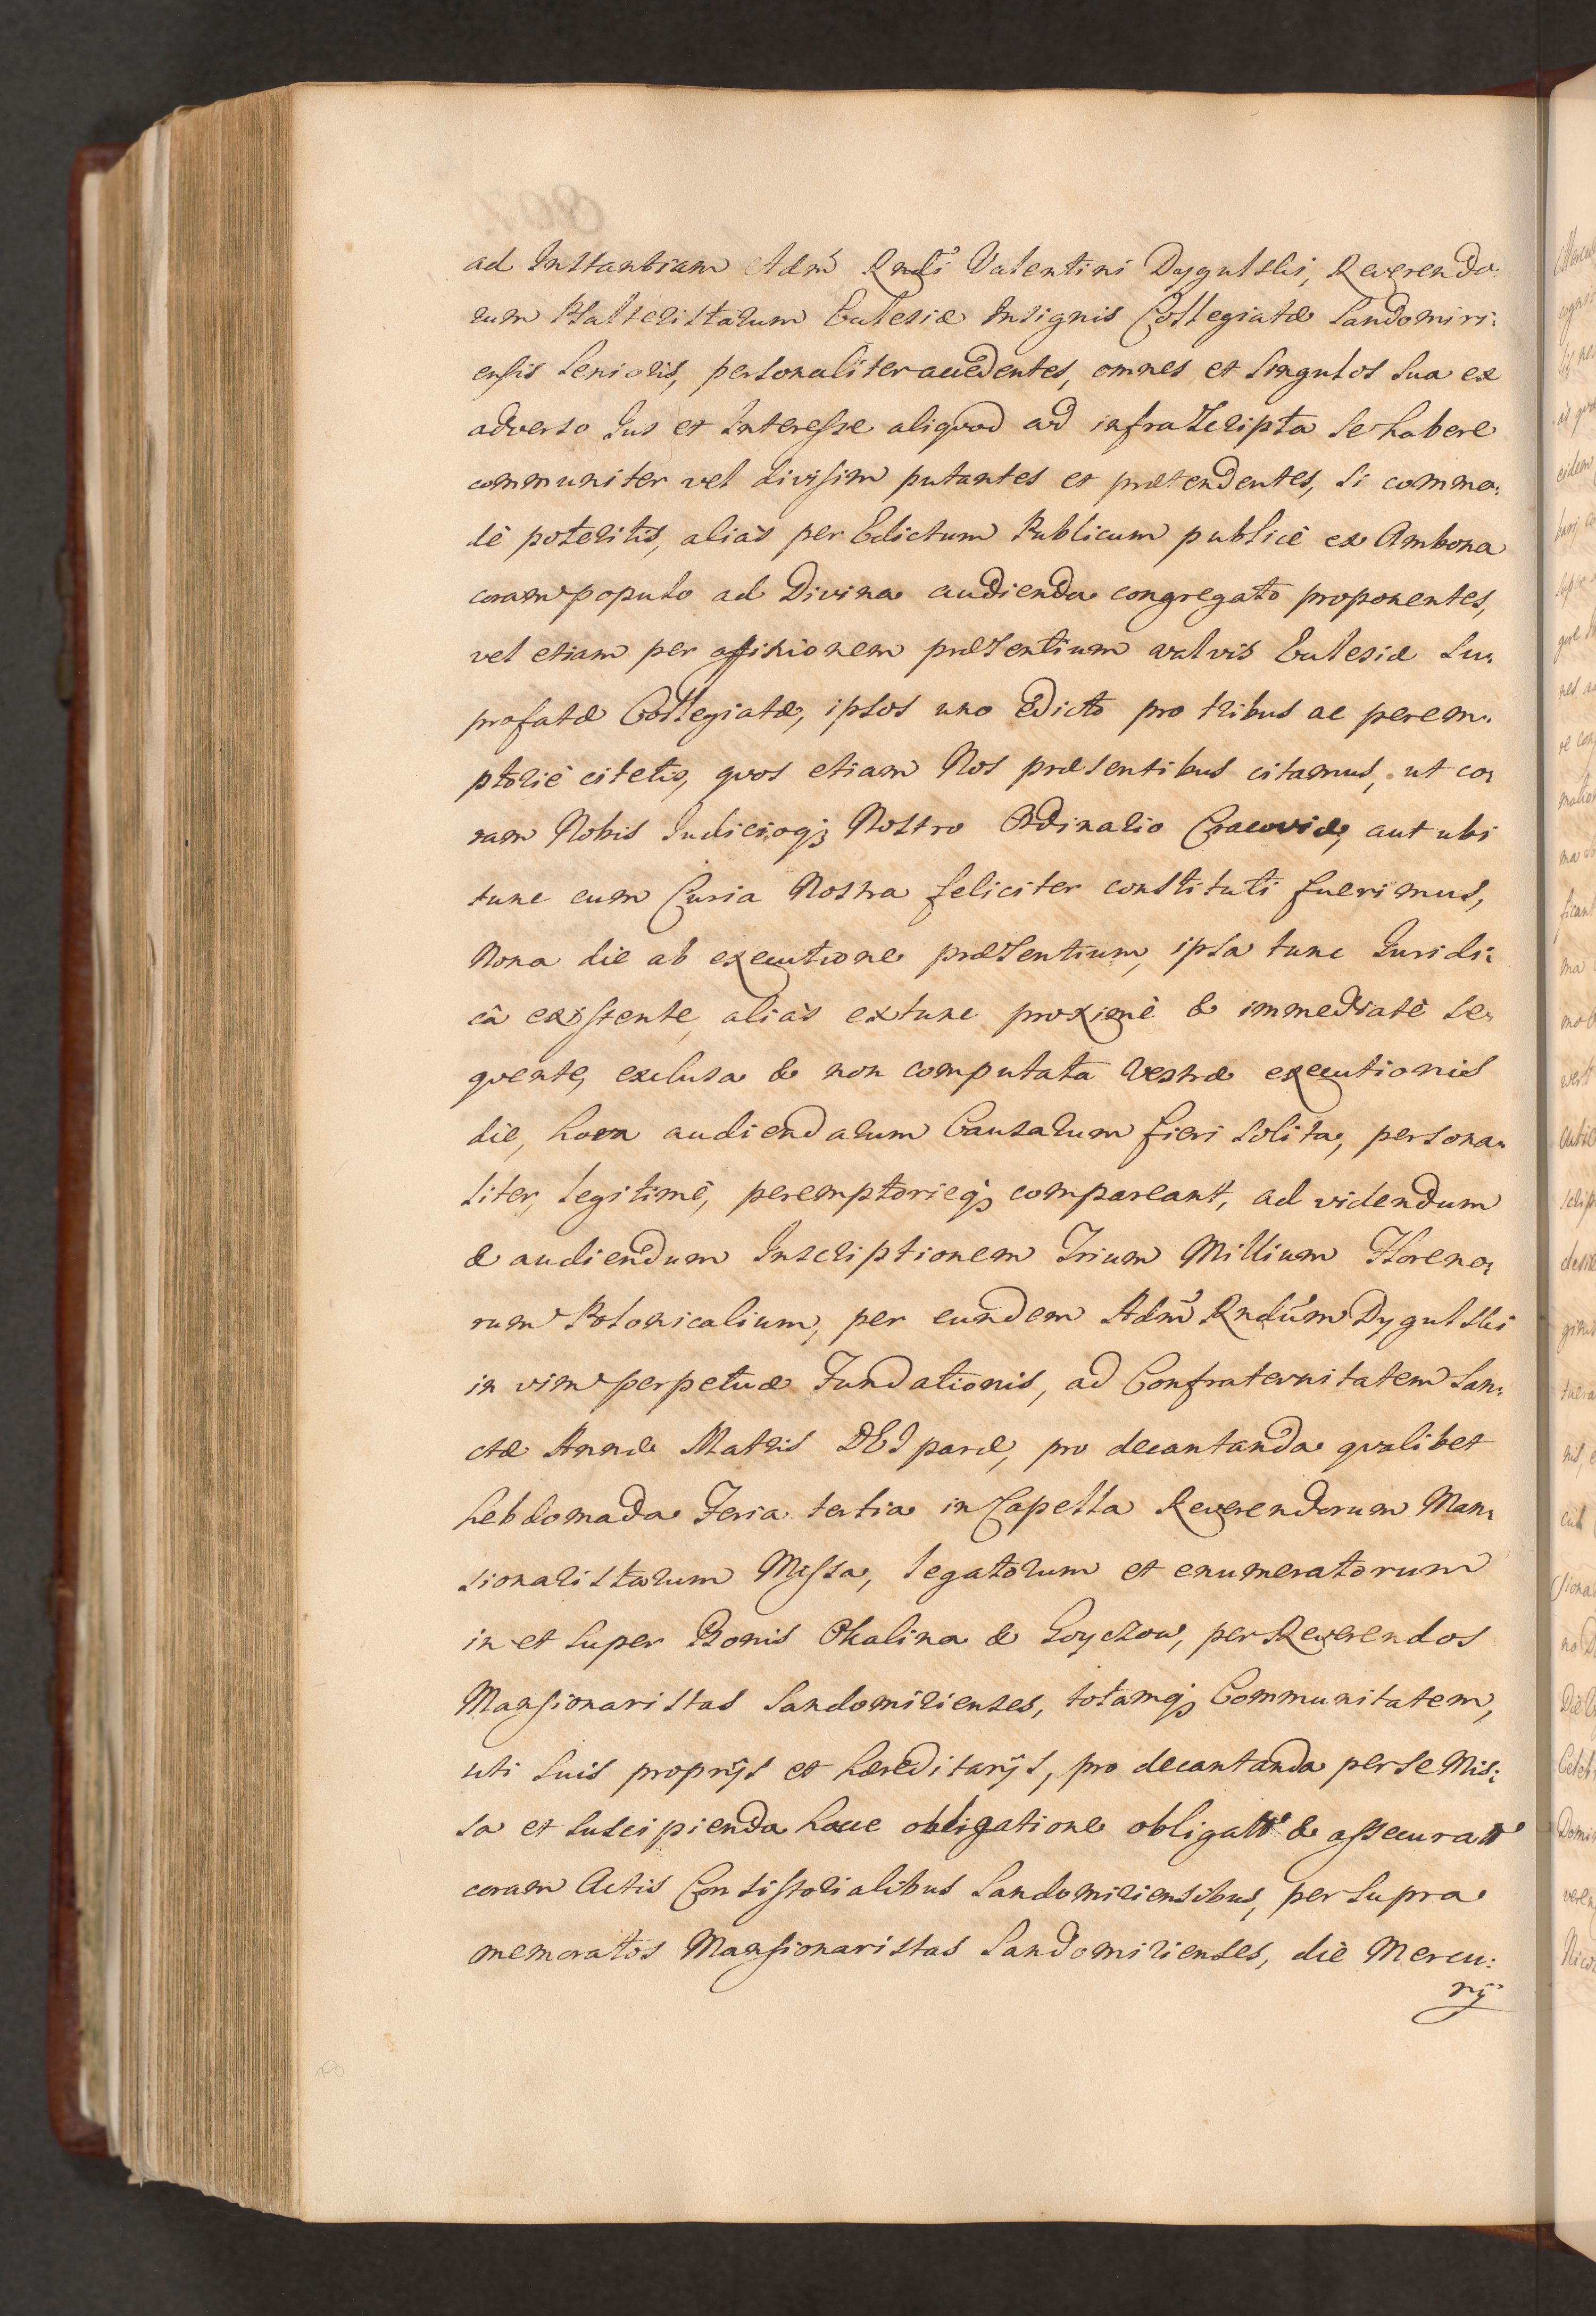 ad Instantiam Adm̃ Rndi Valentini Dygulski, Reverendo:
rum Psalteristarum Ecclesiæ Insignis Collegiatæ Sandomiri:
ensis Senioris, personaliter accedentes, omnes et singulos sua ex
adverso Jus et Interesse aliquod ad infrascripta se habere
communiter vel divisim putantes et prætendentes, si commo:
dè poteritis, aliàs per Edictum Publicum publicè ex Ambona
coram populo ad Divina audienda congregato proponentes,
vel etiam per affixionem præsentium valvis Ecclesiæ Su:
profatæ Collegiatæ, ipsos uno Edicto pro tribus ac perem:
ptoriè citetis, quos etiam Nos præsentibus citamus, ut co:
ram Nobis Judicioq; Nostro Ordinario Cracoviæ, aut ubi
tunc cum Curia Nostra feliciter constituti fuerimus,
Nona die ab executione præsentium, ipsa tunc Juridi:
câ existente, aliàs extunc proximè & immediatè se:
quente, exclusa & non computata Vestræ executionis
die, hora audiendarum Causarum fieri solita, persona:
liter, legitimè, peremptorieq; compareant, ad videndum
& audiendum Inscriptionem Trium Millium Floreno:
rum Polonicalium, per eundem Adm̃ Rndum Dygulski
in vim perpetuæ Fundationis, ad Confraternitatem San:
ctæ Annæ Matris DEIparæ, pro decantanda qualibet
hebdomada Feria tertia in Capella Reverendorum Man:
sionaristarum Missa, legatorum et enumeratorum
in et super Bonis Okalina & Goyczow, per Reverendos
Mansionaristas Sandomirienses, totamq; Communitatem,
uti suis proprijs et hæreditarijs, pro decantanda per se Mis:
sa et suscipienda hacce obligatione obligatt & assecuratt
coram Actis Consistorialibus Sandomiriensibus, per supra
memoratos Mansionaristas Sandomirienses, die Mercu:
rij